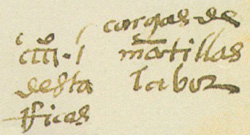 cargas de
iiii. l mãtillas
desta labor
fficas